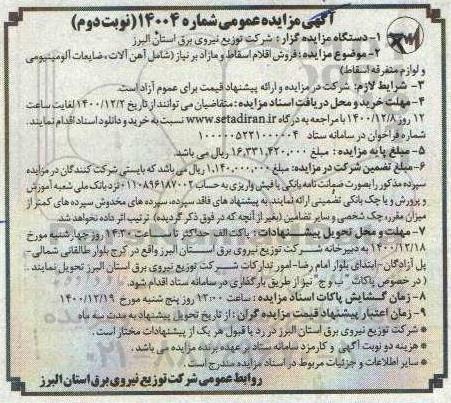 آگهی مزایده عمومی شماره ۱۴۰۰۴ (نوبت دوم)
۱- دستگاه مزایده گزار: شرکت توزیع نیروی برق استان البرز
۲- موضوع مزایده: فروش اقلام اسقاط و مازاد بر نیاز (شامل آهن آلات، ضایعات آلومینیومی
و لوازم متفرقه اسقاط)
۳- شرایط لازم: شرکت در مزایده و ارائه پیشنهاد قیمت برای عموم آزاد است.
۴- مهلت خرید و محل دریافت اسناد مزایده: متقاضیان می توانند از تاریخ ۱۴۰۰/۱۲/۲ لغایت ساعت
۱۲ روز ۱۴۰۰/۱۲/۸ با مراجعه به درگاه www.setadiran.ir نسبت به خرید و دانلود اسناد اقدام نمایند.
شماره فراخوان در سامانه ستاد ۱۰۰۰۰۵۲۲۱۰۰۰۰۴
۵- مبلغ پایه مزایده: مبلغ ۱۶,۳۳۱,۴۲۰,۰۰۰ ریال می باشد.
۶- مبلغ تضمین شرکت در مزایده: مبلغ ۱,۱۴۰,۰۰۰,۰۰۰ ریال می باشد که بایستی شرکت کنندگان در مزایده
سپرده مذکور را بصورت ضمانت نامه بانکی یا فیش واریزی به حساب ۰۱۱۰۸۹۶۱۸۷۰۰۲ نزد بانک ملی شعبه آموزش
و پرورش و یا چک بانکی تضمینی ارائه نمایند به پیشنهاد های فاقد سپرده، سپرده های مخدوش سپرده های کمتر از
میزان مقرر، چک شخصی و سایر تضامین (بغیر از آنچه که در فوق ذکر گردیده) ترتیب اثر داده نخواهد شد.
۷- مهلت و محل تحویل پیشنهادات: پاکت الف حداکثر تا ساعت ۱۴:۳۰ روز چهارشنبه مورخ
۱۴۰۰/۱۲/۱۸ به دبیرخانه شرکت توزیع نیروی برق استان البرز واقع در کرج بلوار طالقانی شمالی-
پل آزادگان- ابتدای بلوار امام رضا- امور تدارکات شرکت توزیع نیروی برق استان البرز تحویل نمایند.
( در خصوص پاکات "ب و ج" نیز از طریق بارگذاری در سامانه ستاد اقدام شود.
۸- زمان گشایش پاکات اسناد مزایده: ساعت ۱۲:۰۰ روز پنج شنبه مورخ ۱۴۰۰/۱۲/۱۹
۹- زمان اعتبار پیشنهاد قیمت مزایده گران: از تاریخ تحویل پیشنهاد به مدت سه ماه
* شرکت توزیع نیروی برق استان البرز در رد یا قبول هر یک از پیشنهادات مختار است.
* هزینه دو نوبت آگهی و کارمزد سامانه ستاد بر عهده برنده مزایده می باشد.
* سایر اطلاعات و جزئیات مربوط در اسناد مزایده مندرج است.
روابط عمومی شرکت توزیع نیروی برق استان البرز